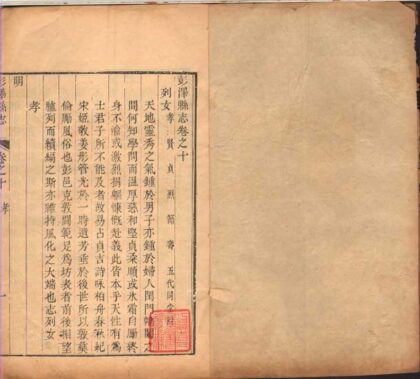 彭澤縣志卷之十
列女 孝 賢 貞 烈 節 壽 五代同堂附
天地靈秀之氣鍾於男子亦鍾於婦人閨門闥之
間何知學問而溫厚慈和堅貞柔順或氷霜自厲終
身不渝或激烈捐軀慷慨赴義此皆本乎天性有為
士君子所不能及者故易占貞吉詩咏柏舟春秋紀
宋姬敬姜彤管光於一時遺芳垂於後世所以敦彝
倫勵風俗也彭邑克敦閫範足為坊表者前後相望
臚列而續編之斯亦維持風化之大端也志列女
孝
明
彭澤縣志 卷之十 孝 一